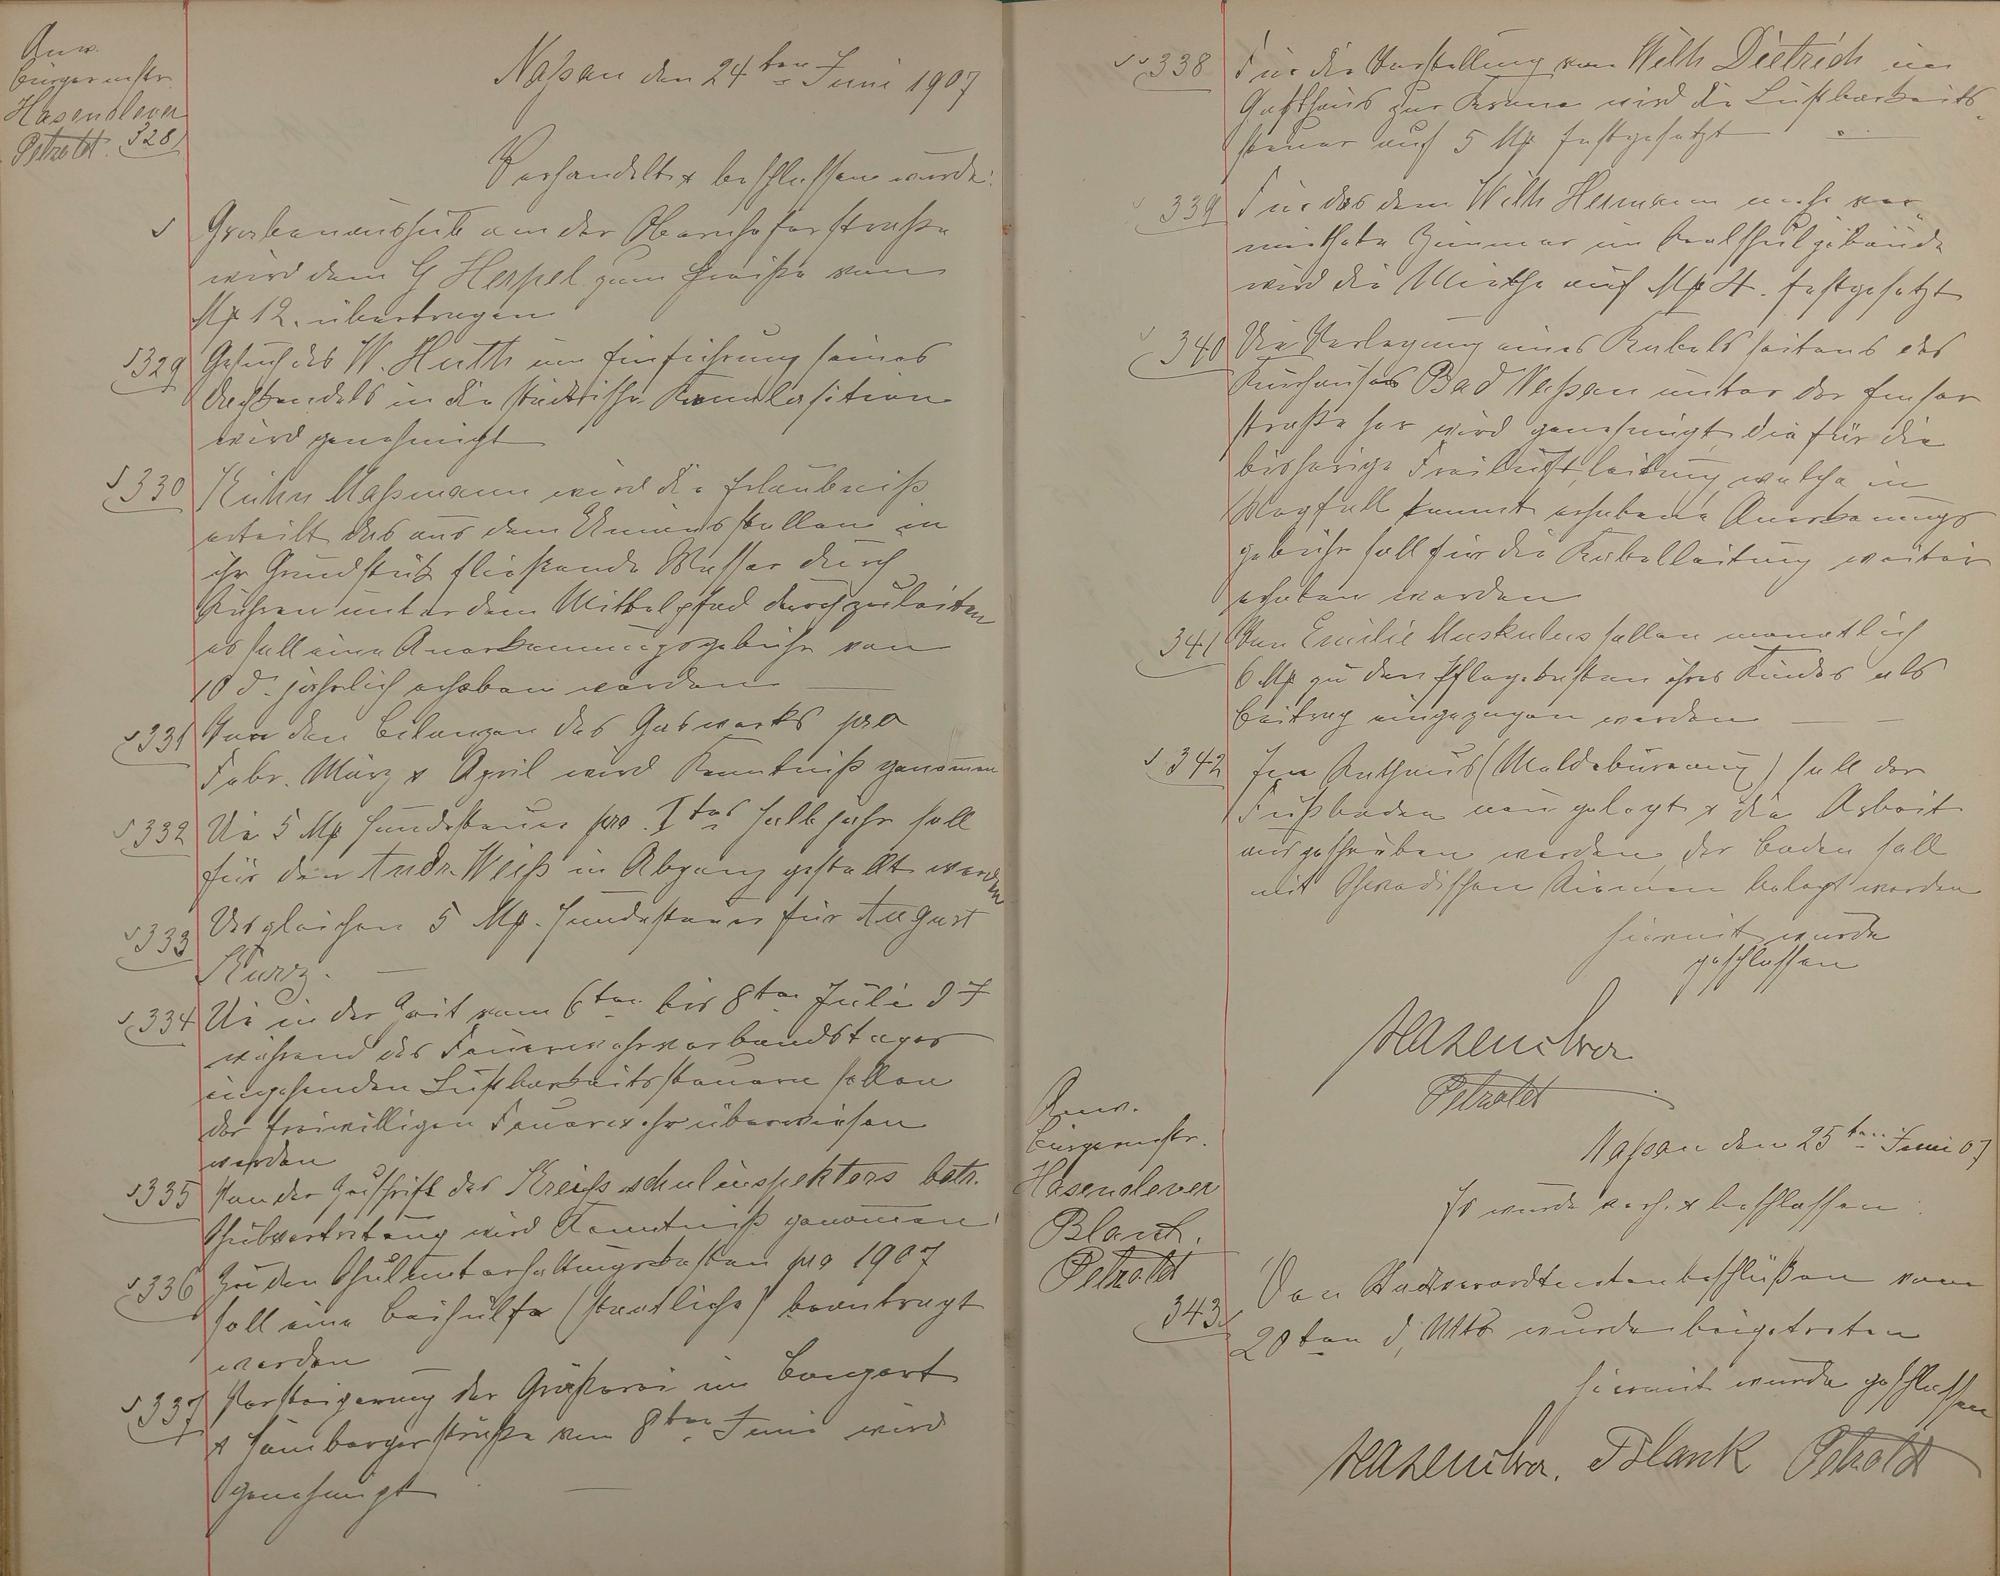 Anw.
Bürgermstr.
Hasenclever
Petzoldt. 328
Naßau den 24ten Juni 1907
Verhandelt & beschlossen wurde:
Grabenaushub an der Obernhoferstraße
wird dem G Herpel zum Preiße von
Mk 12. übertragen
329 Gesuch des W. Huth um Einführung seines
in die städtische
wird genehmigt
330 Kuhn Maßmann wird die Erlaubniß
erteilt das aus dem Stollen in
ihr Grundstük fließende Wasser durch
Röhren unter dem Mittelpfad durchzuleiten
es soll eine Anerkennungsgebühr von
10 d. jährlich erhoben werden
331 Von den Bilanzen des Gaswerks pro
Febr. März & April wird Kenntniß genommen
332 Die 5 Mk Hundesteuer pro Ites Halbjahr soll
für den Andr. Weiß in Abgang gestellt werden
333 Desgleichen 5 Mk. Hundesteuer für August
Kurz.
334 Die in der Zeit vom 6ten bis 8ten Juli 07
während des Feuerwehrverbandstages
eingehenden Lustbarkeitssteuern sollen
der freiwilligen Feuerwehr überwiesen
werden
335 Von der Zuschrift des Kreisschulinspektors betr.
Schulvertretung wird Kenntniß genommen
336 Zu den Schulunterhaltungskosten pro 1907
soll eine Beihülfe (staatliche) beantragt
werden
337 Versteigerung der Gräserei im Bongart
& Hömbergerstraße vom 8ten Juni wird
genehmigt
338 Für die Vorstellung von Wilh Dietrich im
Gasthaus zur Krone wird die Lustbarkeits-
steuer auf 5 Mk festgesetzt
339 Für das dem Wilh Hermann mehr ver
miethete Zimmer im Realschulgebäude
wird die Miethe auf Mk 4. festgesetzt
340 Die Verlegung eines Kabels seitens des
Kurhauses Bad Naßau unter der Emser
straße her wird genehmigt die für die
bisherige Freiluftleitung welche in
Wegfall kommt erhobene Anerkennungs
gebühr soll für die Kabelleitung weiter
erhoben werden
341 Von Emilie Muskulus sollen monatlich
6 Mk zu den Pflegekosten ihres Kindes als
Beitrag eingezogen werden
342 Im Rathaus (Meldebüreau) soll der
Fußboden neu gelegt & die Arbeit
ausgeschrieben werden der Boden soll
mit Schwedischen Riemen belegt werden
hiermit wurde
geschlossen
Hasenclever
Petzoldt
Anw.
Bürgermstr.
Hasenclever
Blank.
Petzoldt
Naßau den 25ten Juni 07
Es wurde verh. & beschlossen:
343 Den Stadtverordtnetenbeschlüßen vom
20ten d. Mts wurde beigetreten
hiermit wurde geschlossen
Hasenclever. Blank Petzoldt